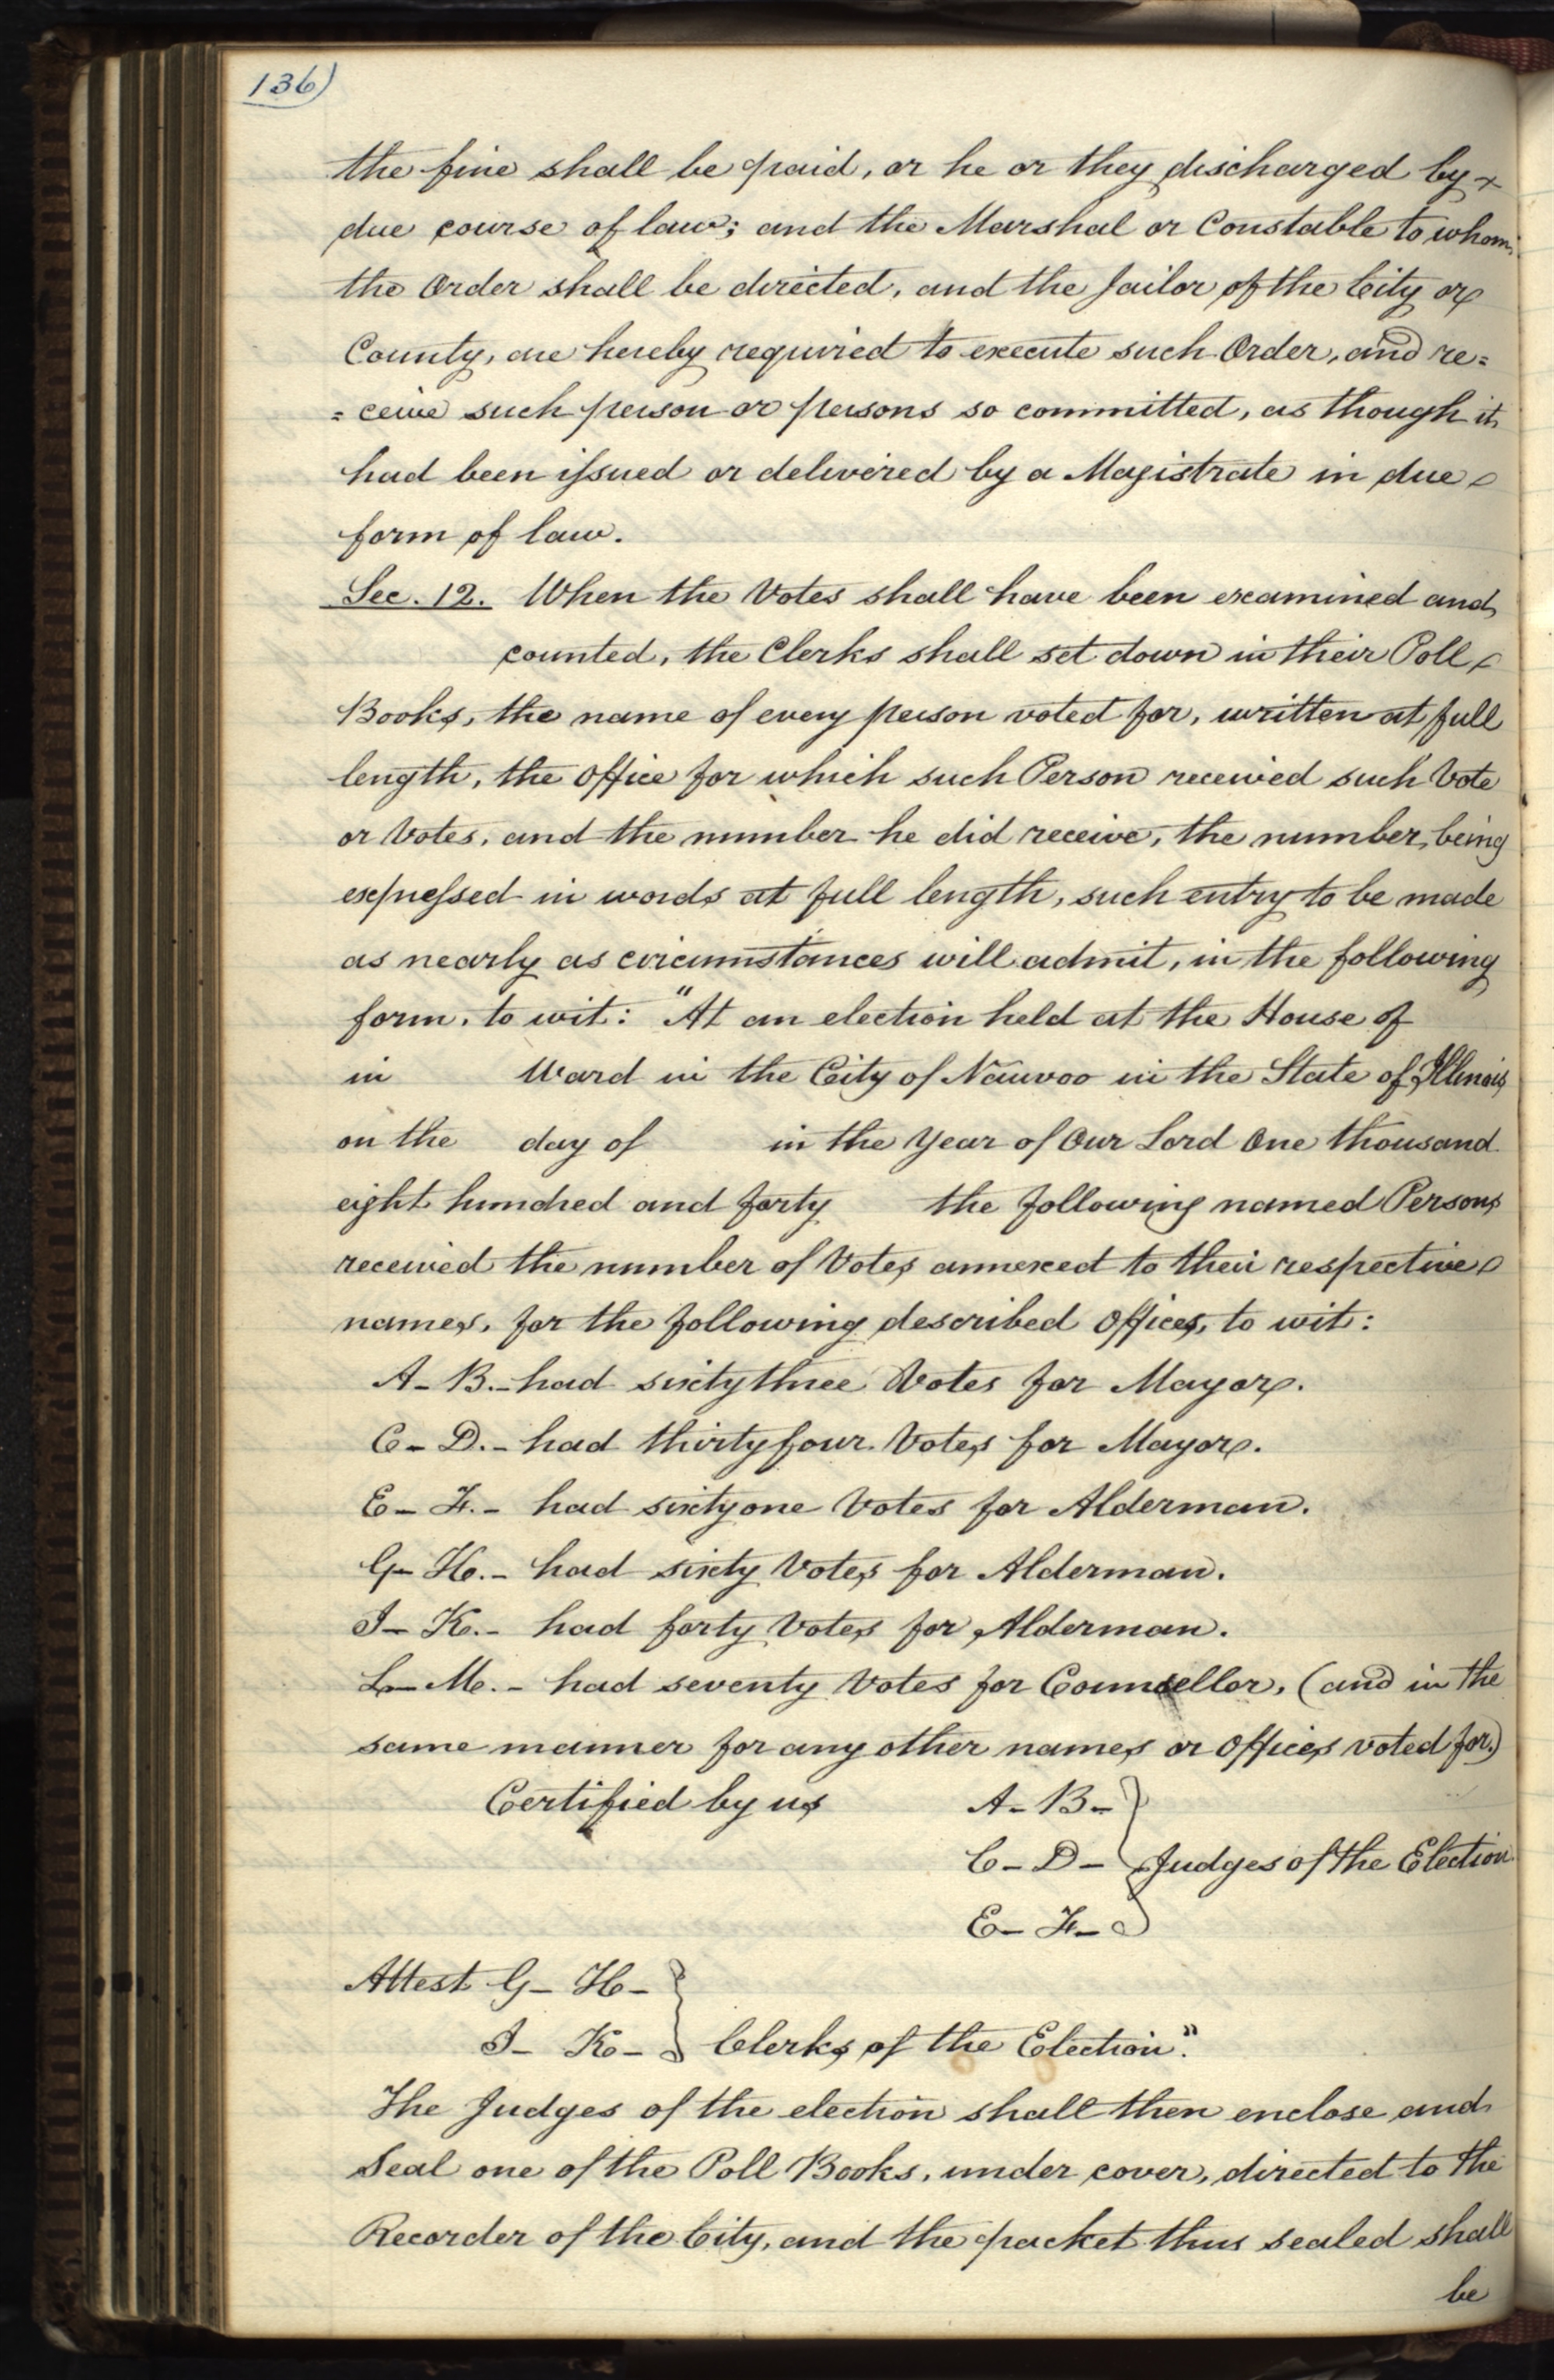 136)
the fine shall be paid, or he or they discharged by
due course of law; and the Marshal or Constable to whom
the Order shall be directed, and the Jailor of the City or
County, are hereby required to execute such Order, and re=
=ceive such person or persons so committed, as though it
had been issued or delivered by a Magistrate in due
form of law.
Sec. 12. When the Votes shall have been examined and
counted, the Clerks shall set down in their Poll
Books, the name of every person voted for, written at full
length, the Office for which such Person received such Vote
or Votes, and the number he did receive, the number being
expressed in words at full length, such entry to be made
as nearly as circumstances will admit, in the following
form, to wit: "At an election held at the House of
in Ward in the City of Nauvoo in the State of Illinois
on the day of in the Year of Our Lord One thousand
eight hundred and forty the following named Persons
received the number of Votes annexed to their respective
names, for the following described Offices, to wit:
A- B.- had sixty three Votes for Mayor.
C- D.- had thirty four Votes for Mayor.
E- F.- had sixty one Votes for Alderman.
G- H.- had sixty Votes for Alderman.
I- K.- had forty Votes for Alderman.
L- M.- had seventy Votes for Counsellor, (and in the
same manner for any other names or Offices voted for.)
Certified by us A- B-
C- D- Judges of the Election
E- F-
Attest G- H-
I- K- Clerks of the Election."
The Judges of the election shall then enclose and
Seal one of the Poll Books, under cover, directed to the
Recorder of the City, and the packet thus sealed shall
be